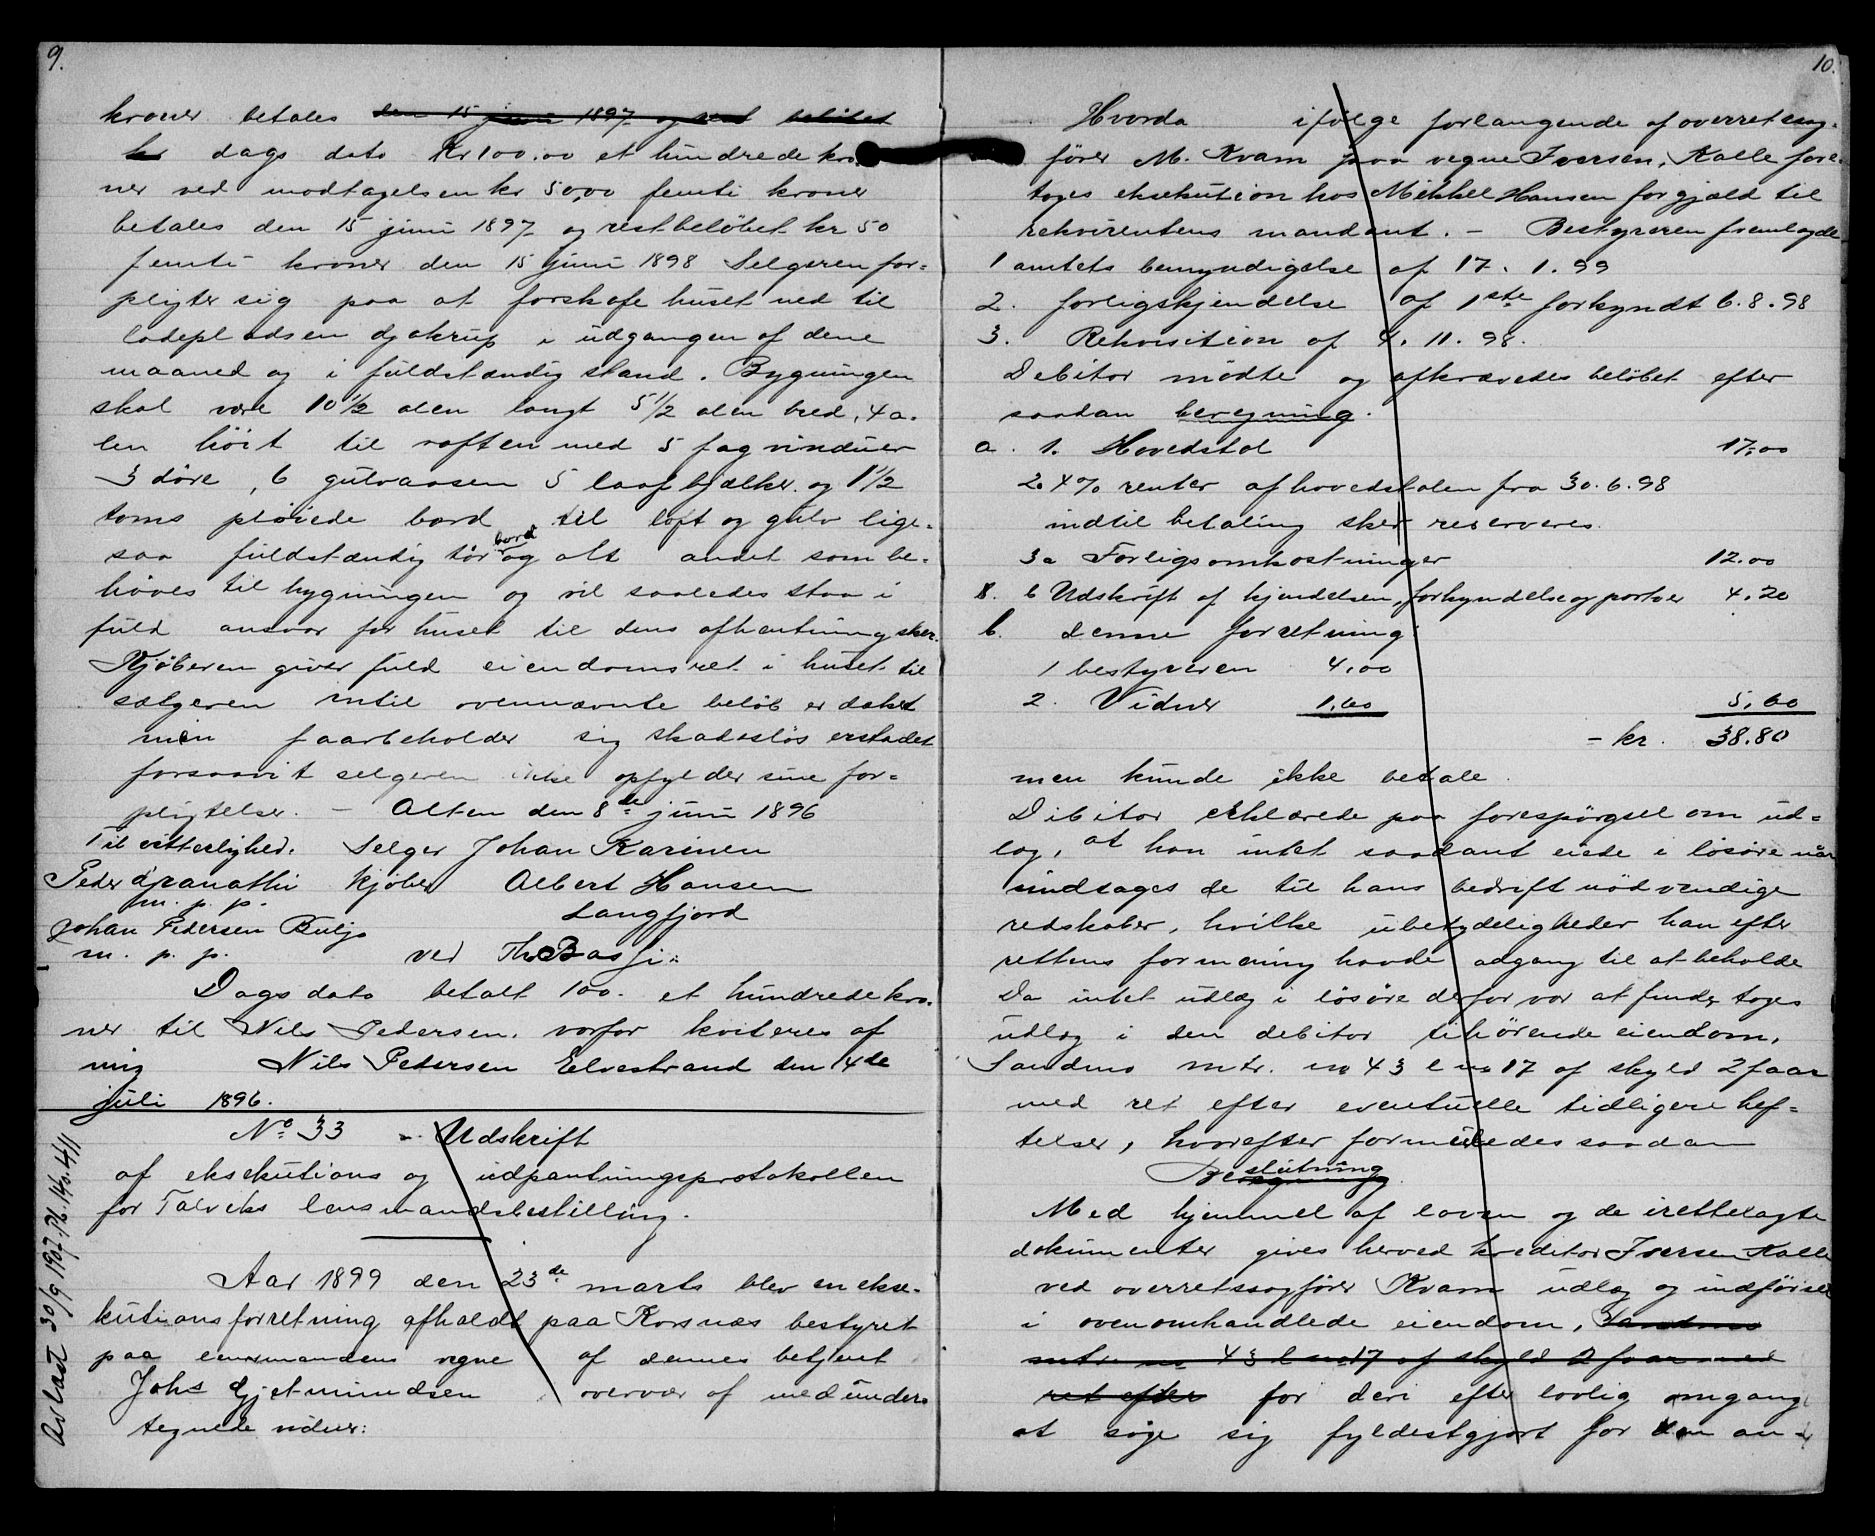 9.
kroner betales den 15 juni 1897 og rest belöbet
kr dags dato Kr 100.00 et hundrede kro
ner ved modtagelsen kr 50,00 femti kroner
betales den 15 juni 1897 og restbelöbet kr 50
femti kroner den 15 juni 1898 Selgeren for=
pligter sig paa at forskafe huset ned til
ladepladsen i udgangen af dene
maaned og i fuldstændig stand. Bygningen
skal være 10 1/2 alen langt 5 1/2 alen bred, 4 a-
len höit til raften med 5 fag vinduer
3 döre, 6 gulvaasen 5 laafbjælker og 1 1/2
toms plöiede bord til loft og gulv lige-
saa fuldstændig tör bord og alt andet som be-
höves til bygningen og vil saaledes staa i
fuld ansvar for huset til dens afhentning sker.
Kjöberen giver fuld eiendomsret i huset til
sælgeren intil ovennævnte belöb er dekket
men faarbeholder sig skadeslös erstadet
forsaavit selgeren ikke opfylder sine for=
pligtelser. — Alten den 8de juni 1896
Til vitterlighed. Selger Johan Karinen
Peder kjöber Albert Hansen
m. p. p. Langfjord
Johan Pedersen Buljo
m. p. p. ved Th Basji
Dags dato betalt 100. et hundrede kro-
ner til Nils Pedersen, vorfor kviteres af
mig Nils Pedersen Elvestrand den 4de
juli 1896.
No 33 - Udskrift
af eksekutions og udpantningsprotokollen
for Talviks lensmandsbestilling.
Aar 1899 den 23de marts blev en ekse-
kutionsforretning afholdt paa Korsnæs bestyret
paa lensmandens vegne af dennes betjent
Johs Gjetmundsen overvær af medunder-
tegnede vidner:
Avlæst 30/9 1907. Pb. 14 o. 411
10.
Hvorda ifölge forlangende af overretssag-
förer M. Kvam paa vegne Iversen, Kalle fore-
toges eksekution hos Mikkel Hansen for gjæld til
rekvirentens mandant. — Bestyreren fremlagde
1 amtets bemyndigelse af 17. 1. 99
2. forligskjendelse af 1ste forkyndt 6. 8. 98
3. Rekvisition af 4. 11. 98.
Debitor mödte og afkrævedes belöbet efter
saadan beregning.
a. 1. Hovedstol 17.00
2. 4% renter af hovedstolen fra 30. 6. 98
indtil betaling sker reserveres.
3a Forligsomkostninger 12.00
8. b Udskrift af kjendelsen, forkyndelse og portoer 4.20
b. denne forretning
1 bestyreren 4.00
2. Vidner 1.60 5.60
= kr. 38.80
men kunde ikke betale.
Debitor erklærede paa forespörgsel om ud=
læg, at han intet saadant eiede i lösöre naar
undtages de til hans bedrift nödvendige
redskaber, hvilke ubetydeligheder han efter
rettens formening havde adgang til at beholde
Da intet udlæg i lösöre derfor var at finde toges
udlæg i den debitor tilhörende eiendom,
Sandmo mtr. no 43 l no 17 af skyld 2 faar
med ret efter eventuelle tidligere hef=
telser, hvorefter formuledes saadan
Beslutning
Med hjemmel af loven og de irettelagte
dokumenter gives herved kreditor Iversen Kalle
ved overretssagförer Kvam udlæg og indförsel
i ovenomhandlede eiendom, Sandmo
mtr no 43 l no 17 af skyld 2 faar med
ret efter for deri efter lovlig omgang
at söge sig fyldestgjort for den an-